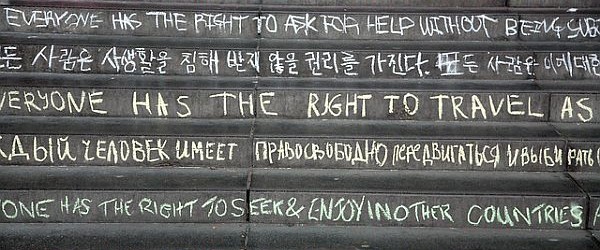 EVERYONE HAS THE RIGHT TO ASK FOR HELP WITHOUT BEING
든 사람은 사생활을 침해 받지 않을 권리를 가진다. 모든 사람은 이에 대한
VERYONE HAS THE RIGHT TO TRAVEL AS
ЖДЫЙ ЧЕЛОВЕК ИМЕЕТ ПРАВО СВОБОДНО ПЕРЕДВИГАТЬСЯ И ВЫБИРАТЬ
ONE HAS THE RIGHT TO SEEK & ENJOY IN OTHER COUNTRIES